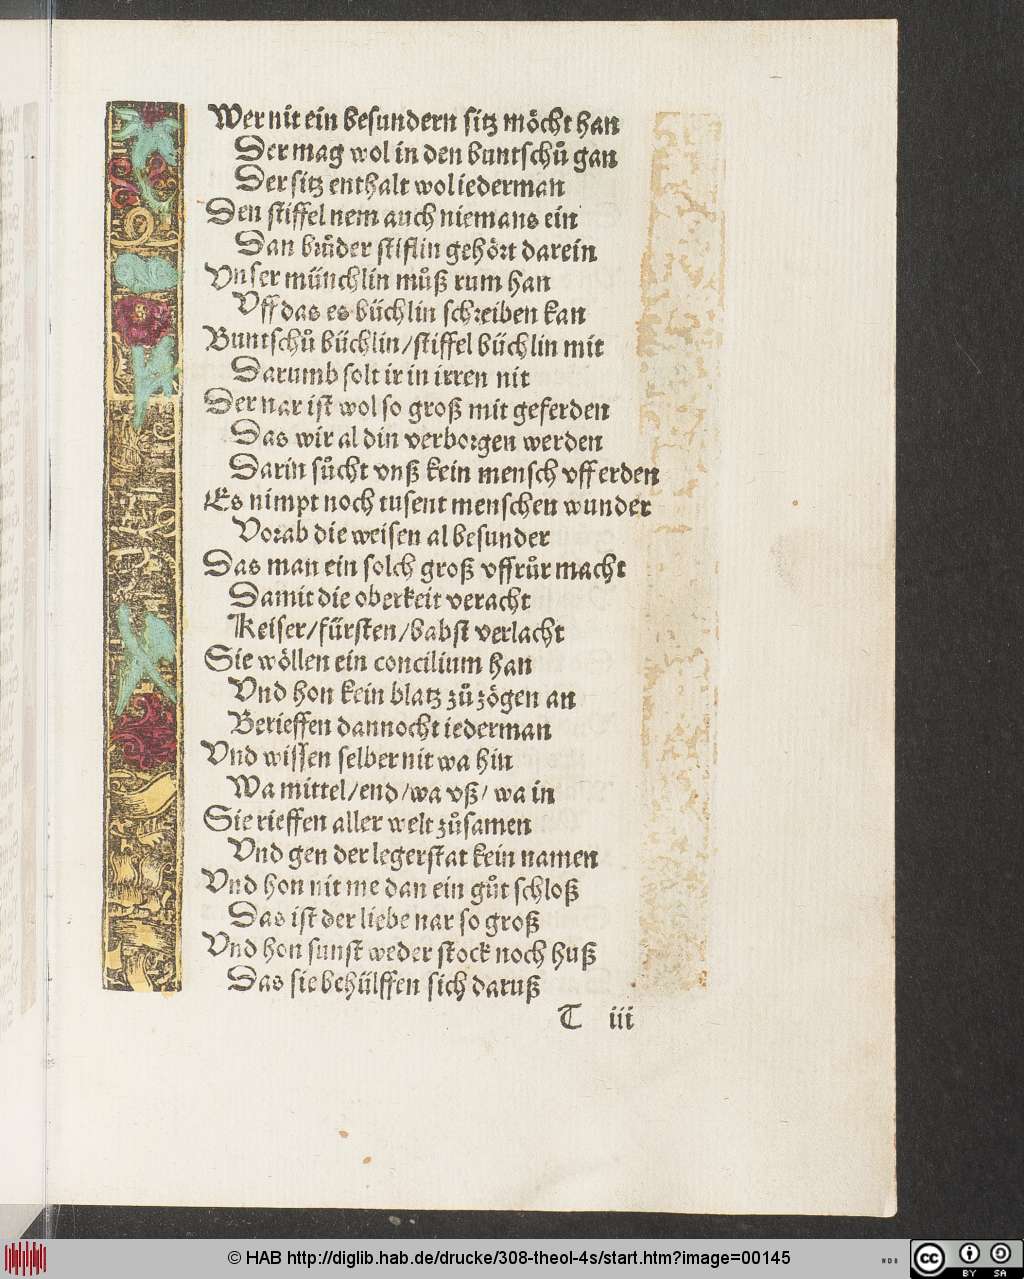 Wer nit ein besundern sitz möcht han
Der mag wol in den buntschů gan
Der sitz enthalt wol iederman
Den stiffel nem auch niemans ein
Dan brůder stiflin gehört darein
Vnser münchlin můß rum han
Vff das es büchlin schreiben kan
Buntschů büchlin/stiffel büchlin mit
Darumb solt ir in irren nit
Der nar ist wol so groß mit geferden
Das wir al din verborgen werden
Darin sůcht vnß kein mensch vff erden
Es nimpt noch tusent menschen wunder
Vorab die weisen al besunder
Das man ein solch groß vffrůr macht
Damit die oberkeit veracht
Keiser/fürsten/babst verlacht
Sie wöllen ein concilium han
Vnd hon kein blatz zů zögen an
Berieffen dannocht iederman
Vnd wissen selber nit wa hin
Wa mittel/end/wa vß/wa in
Sie rieffen aller welt zůsamen
Vnd gen der legerstat kein namen
Vnd hon nit me dan ein gůt schloß
Das ist der liebe nar so groß
Vnd hon sunst weder stock noch huß
Das sie behülffen sich daruß
T iii
© HAB http://diglib.hab.de/drucke/308-theol-4s/start.htm?image=00145
cc BY SA